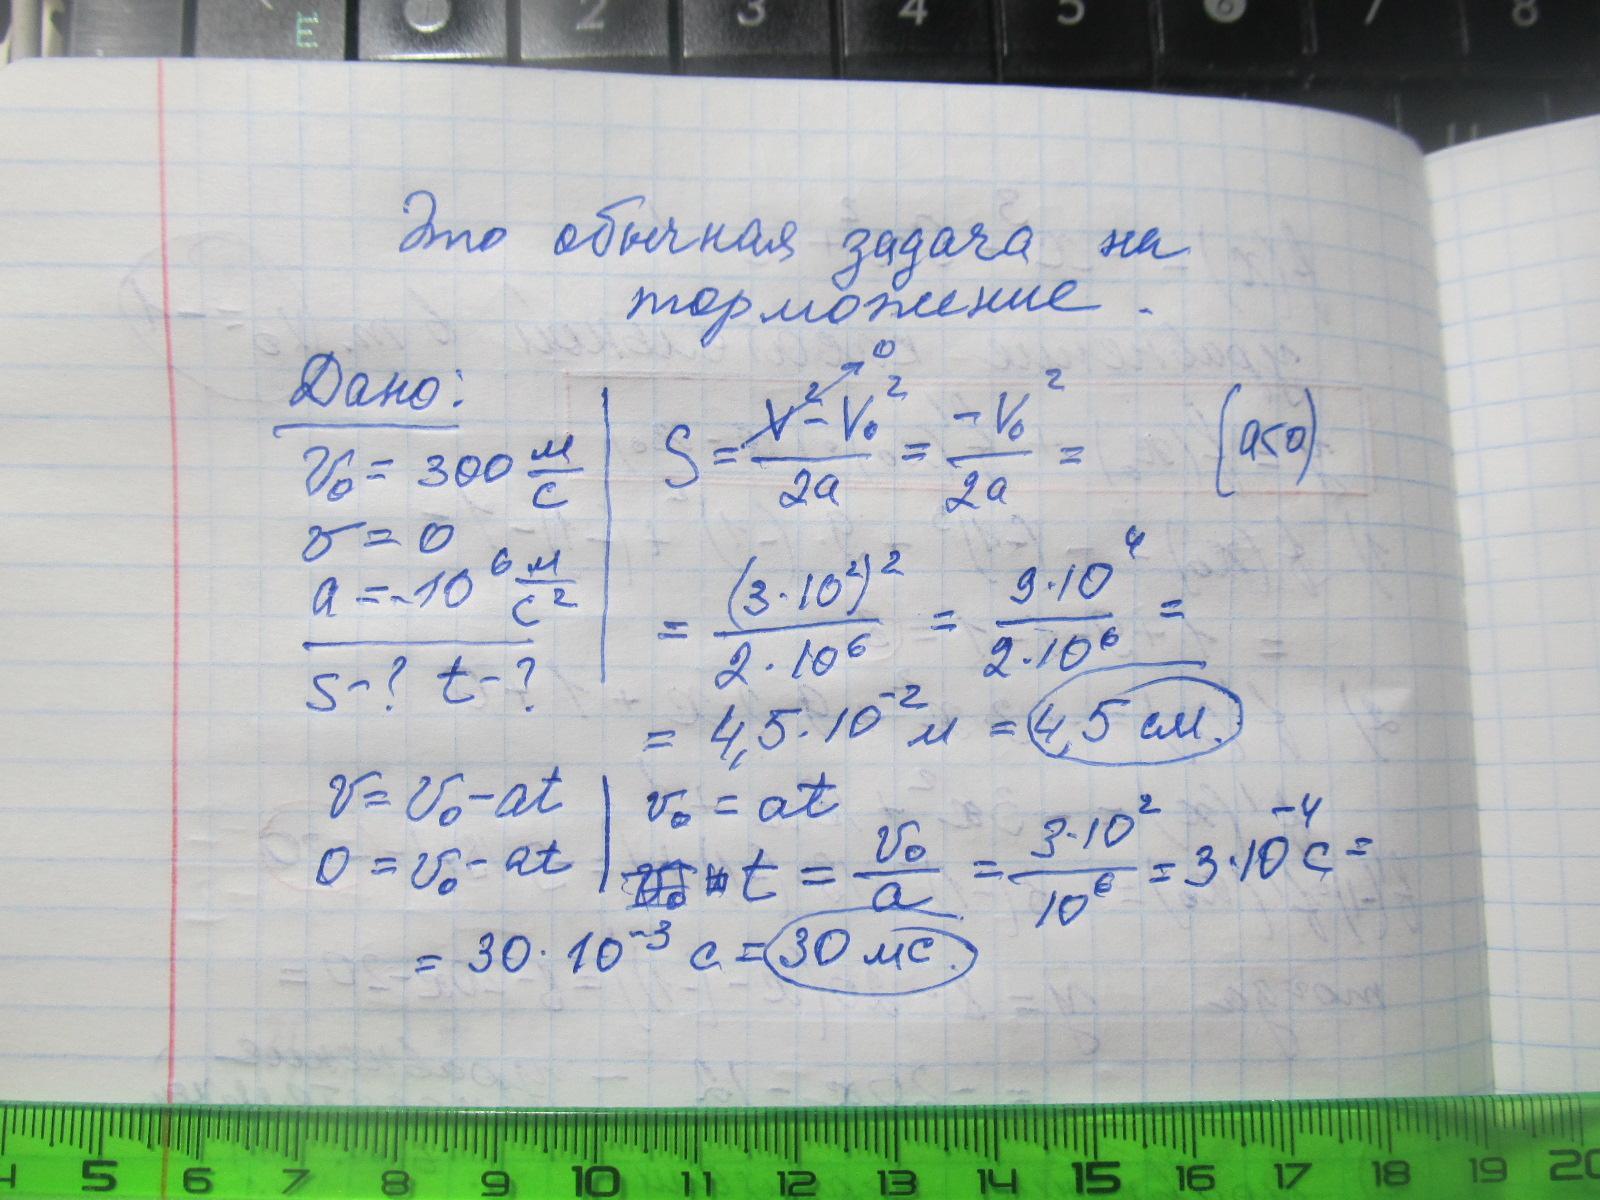 E 2 3 4 5 6 7 8
Это обычная задача на
торможение.
Дано:
V₀ = 300 м/с
v = 0
a = -10⁶ м/с²
S-? t-?
S = (V² - V₀²)/2a = -V₀²/2a = (a<0)
0
= (3·10²)²/(2·10⁶) = 9·10⁴/(2·10⁶) =
= 4,5·10⁻² м = 4,5 см.
v = v₀ - at
0 = v₀ - at
v₀ = at
t = v₀/a = 3·10²/10⁶ = 3·10⁻⁴ с =
= 30·10⁻³ с = 30 мс.
4 5 6 7 8 9 10 11 12 13 14 15 16 17 18 19 20